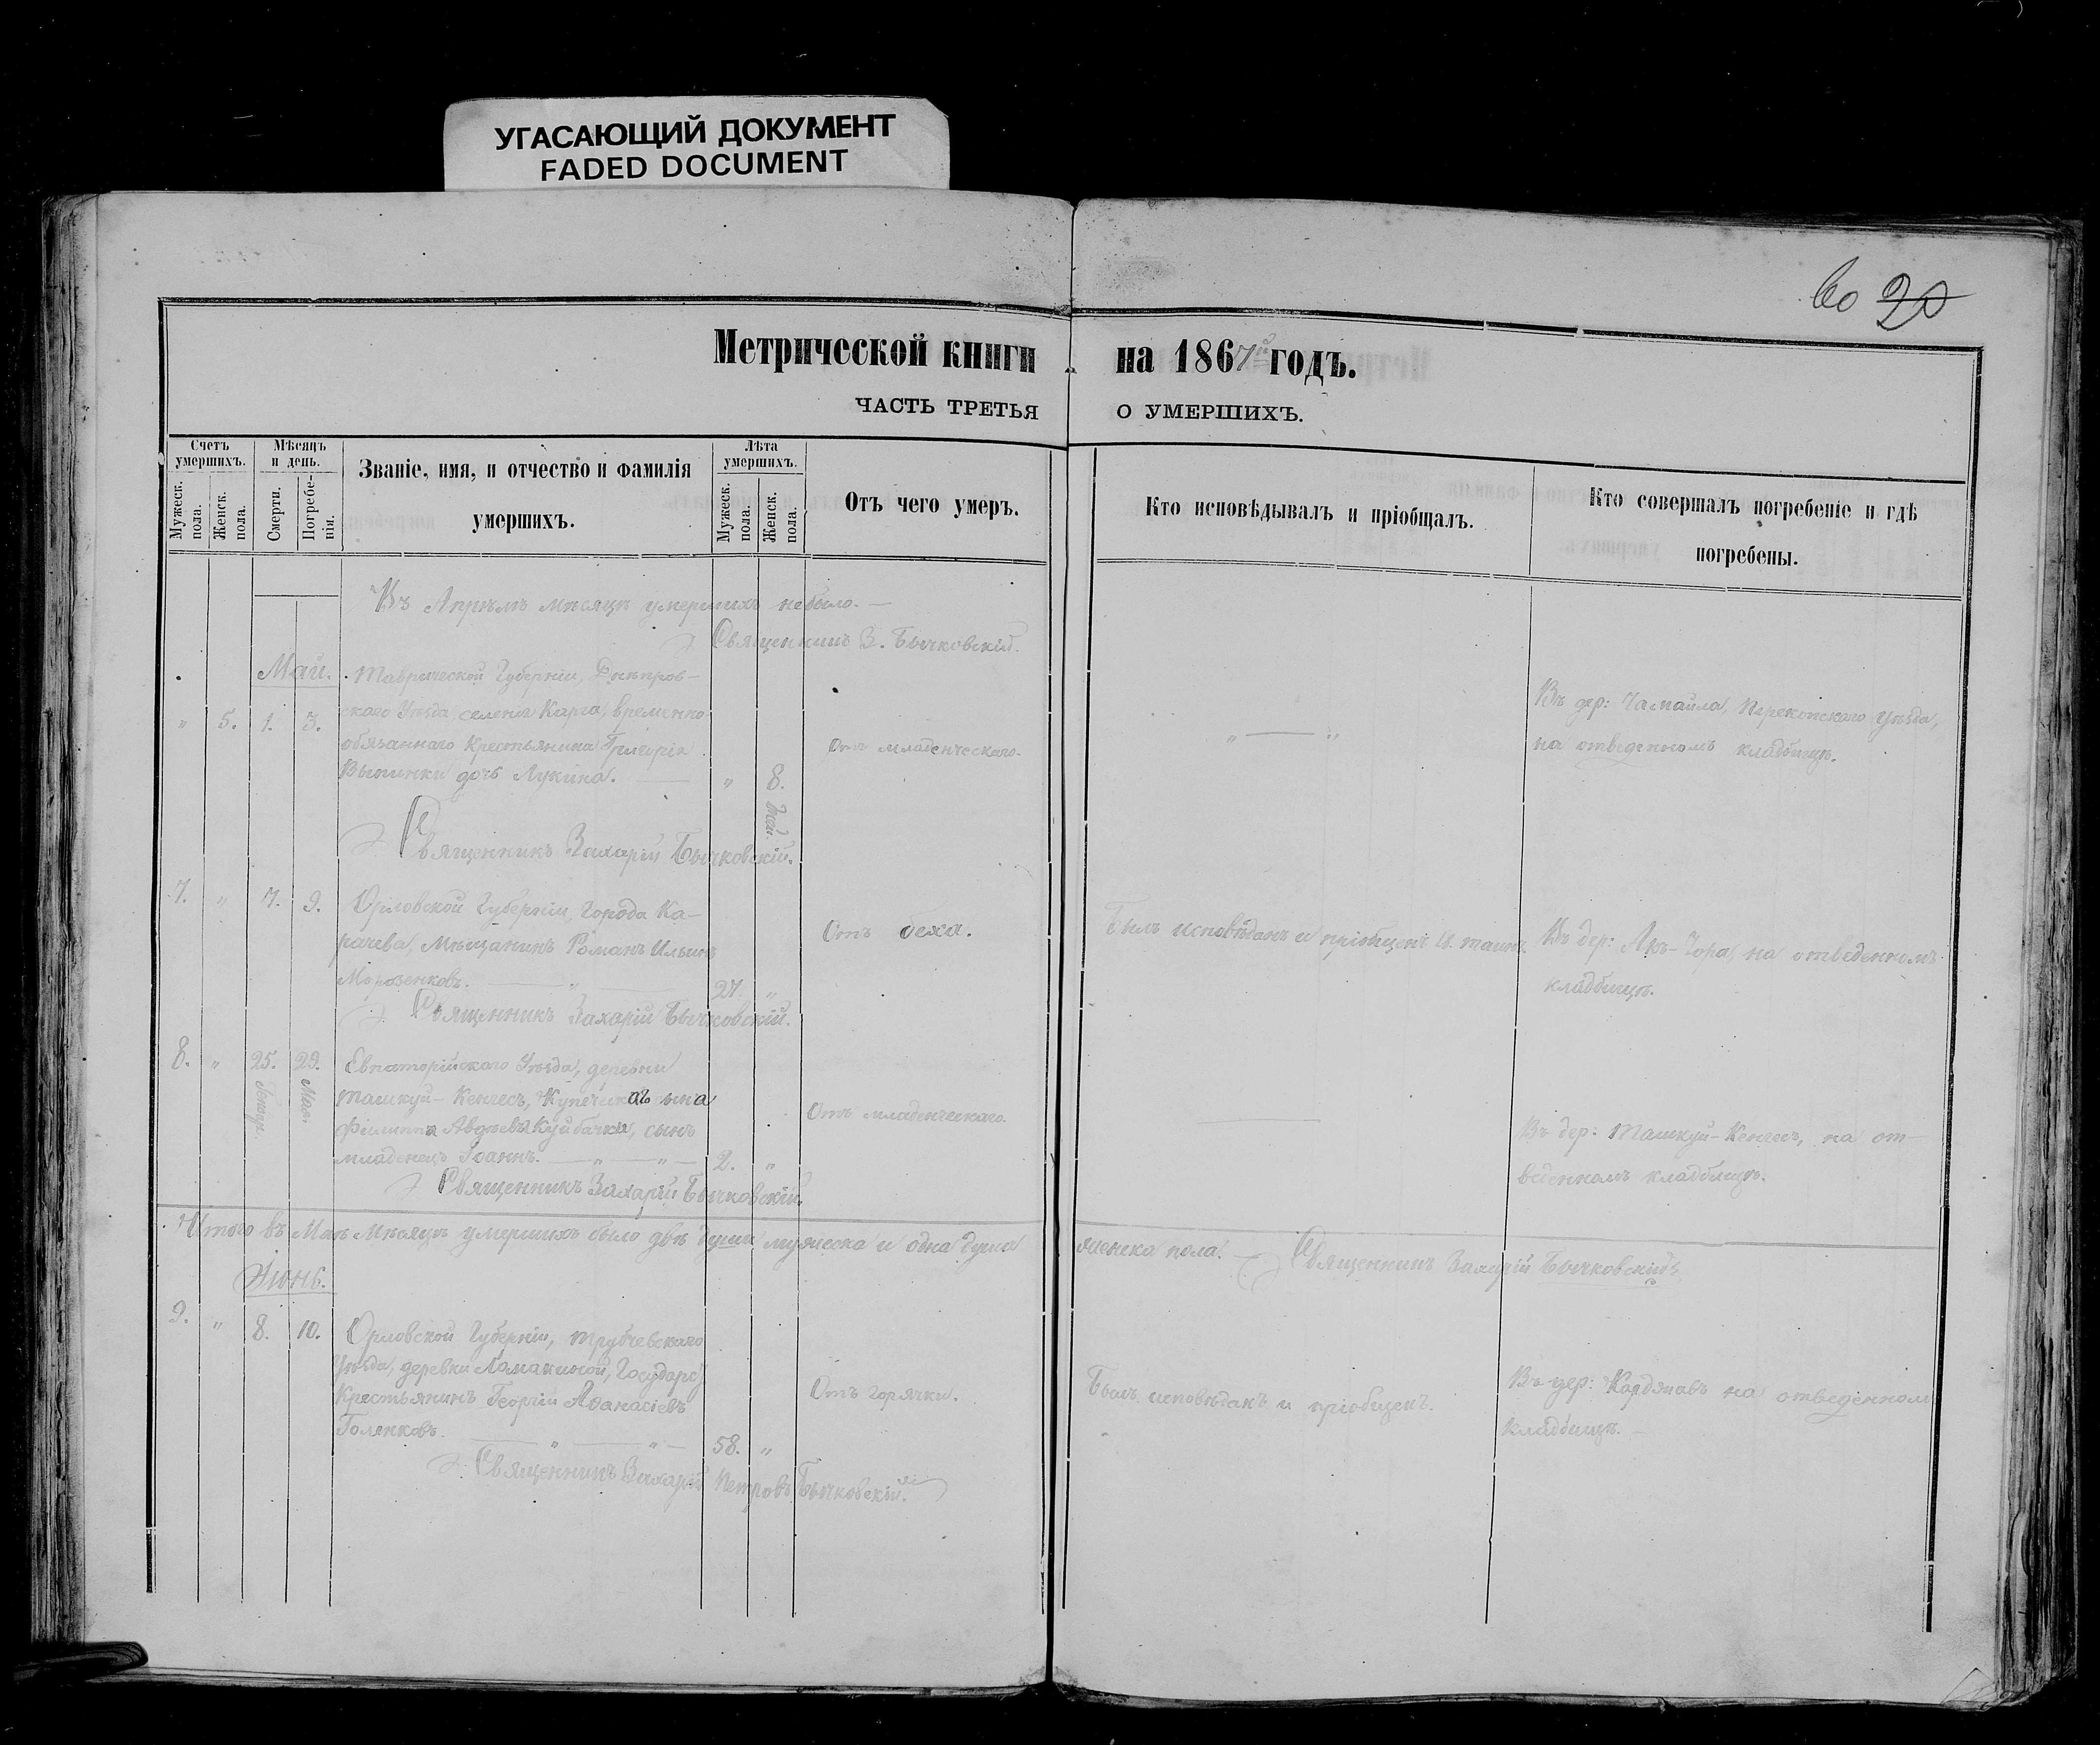 УГАСАЮЩИЙ ДОКУМЕНТ
FADED DOCUMENT
60 20
Метрической книги на 1867й годъ.
ЧАСТЬ ТРЕТЬЯ О УМЕРШИХЪ.
Счетъ умершихъ.
Мужеск. пола.
Женск. пола.
Мѣсяцъ и день.
Смерти.
Погребенія.
Званіе, имя, и отчество и фамилія
умершихъ.
Лѣта умершихъ.
Мужеск. пола.
Женск. пола.
Отъ чего умеръ.
Кто исповѣдывалъ и пріобщалъ.
Кто совершалъ погребеніе и гдѣ
погребены.
Въ Апрѣлѣ мѣсяцѣ умершихъ небыло. —
Священникъ З. Бычковскій.
Май.
" 5. 1. 3.
Таврической Губерніи, Днѣпров-
скаго Уѣзда, селенія Карга, временно
обязаннаго крестьянина Григорія
дочь Лукина. — " 8.
Отъ младенческаго.
" — "
Въ дер: Перекопскаго уѣзда,
на отведенномъ кладбищѣ.
Священникъ Захарій Бычковскій.
7. " 7. 9.
Орловской Губерніи, Города Ка-
рачева, Мѣщанинъ Романъ Ильинъ
Морозенковъ. — " — 27. "
Отъ беха.
Былъ исповѣданъ и пріобщенъ
Въ дер: Акъ-Чора, на отведенномъ
кладбищѣ.
Священникъ Захарій Бычковскій.
8. " 25. 29.
Мая.
Евпаторійскаго Уѣзда, деревни
Ташкуй-Кенгесъ,
Филиппа Авдѣева сынъ
младенецъ Іоаннъ. — " — " — 2. "
Отъ младенческаго.
Въ дер: Ташкуй-Кенгесъ, на от-
веденномъ кладбищѣ.
Священникъ Захарій Бычковскій.
Итого въ Маѣ Мѣсяцѣ умершихъ было двѣ души мужеска и одна душа женска пола. Священникъ Захарій Бычковскій
Іюнь.
9. " 8. 10.
Орловской Губерніи, Трубчевскаго
Уѣзда, деревни Ломакиной, Государс)
Крестьянинъ Георгій Аѳанасіевъ
Голенковъ. — " — " — 58. "
Отъ горячки.
Былъ исповѣданъ и пріобщенъ.
Въ дер: на отведенном
кладбищѣ. —
Священникъ Захарій Петровъ Бычковскій.